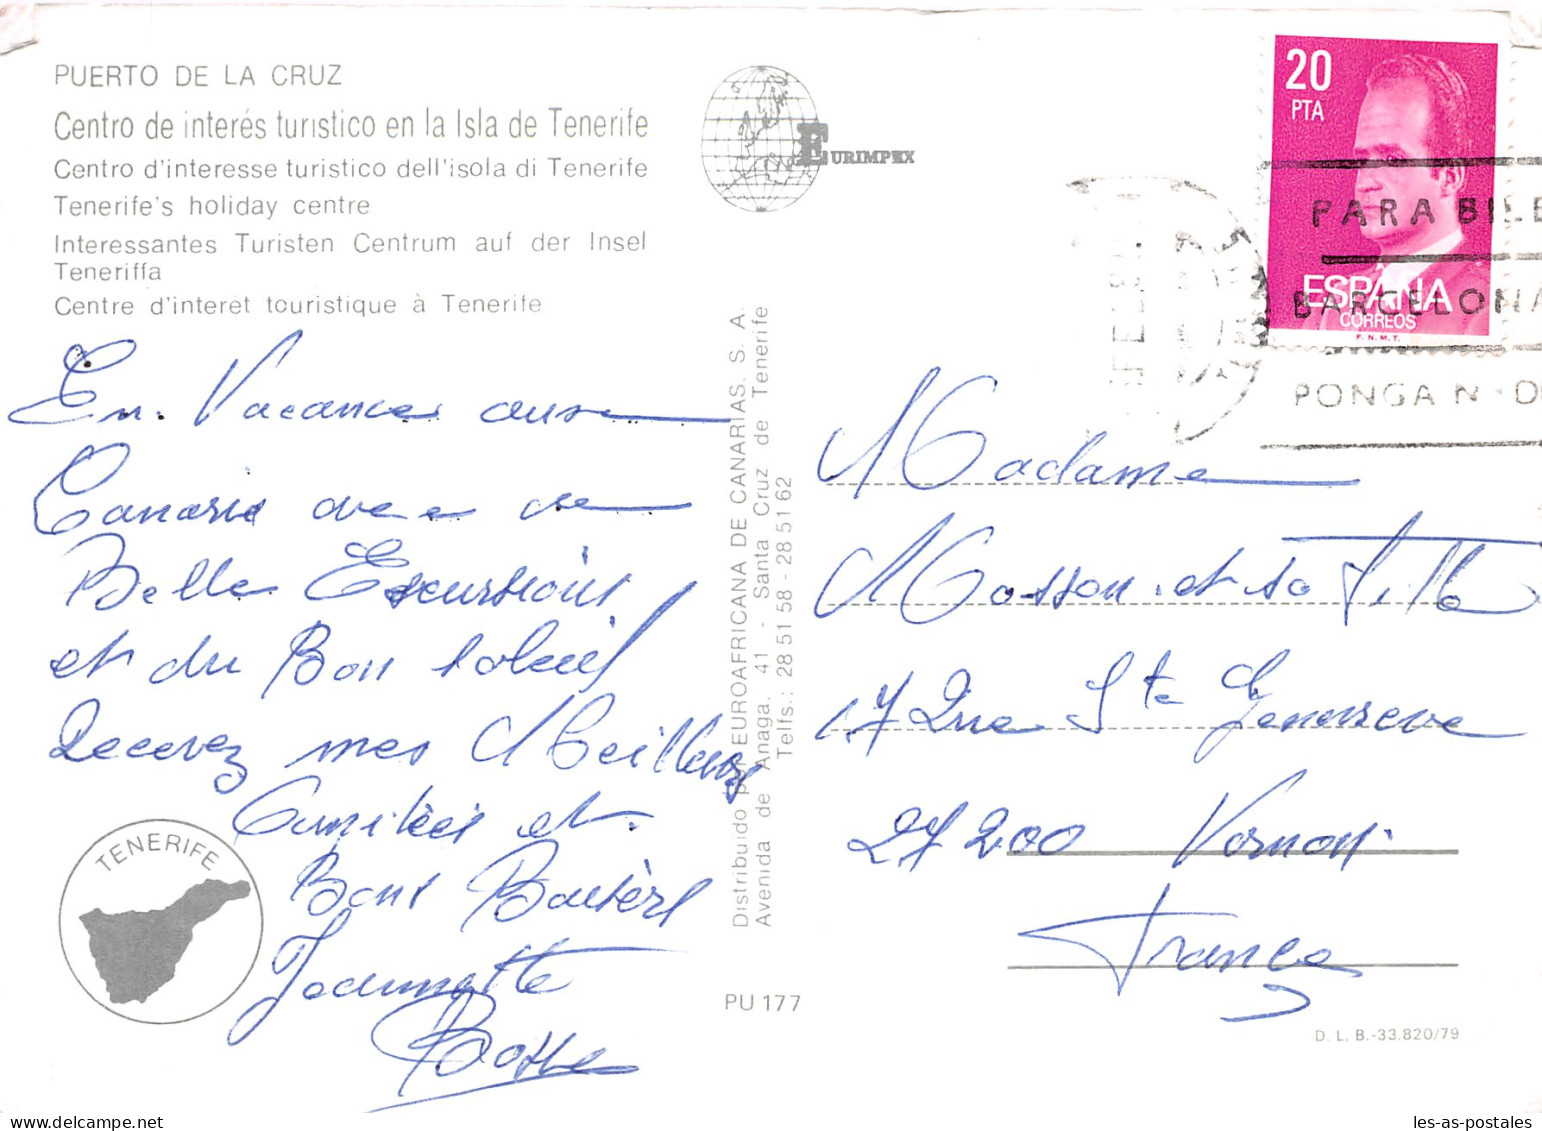 PUERTO DE LA CRUZ
Centro de interés turistico en la Isla de Tenerife
Centro d'interesse turistico dell'isola di Tenerife
Tenerife's holiday centre
Interessantes Turisten Centrum auf der Insel
Teneriffa
Centre d'interet touristique à Tenerife
EURIMPEX
20
PTA
ESPAÑA
CORREOS
F.N.M.T.
PARA BIE
BARCELONA
PONGA N
En Vacances aux
Canarie avec de
Belle Excursions
et du Bon Soleil
Recevez mes Meilleurs
Amitiés et
Bons Baisers
Jeannette
TENERIFE
Distribuido por EUROAFRICANA DE CANARIAS, S. A.
Avenida de Anaga, 41 - Santa Cruz de Tenerife
Telfs.: 28 51 58 - 28 51 62
PU 177
Madame
Masson et sa fille
17 Rue Ste Genevieve
27200 Vernon
France
D. L. B.-33.820/79
les-as-postales